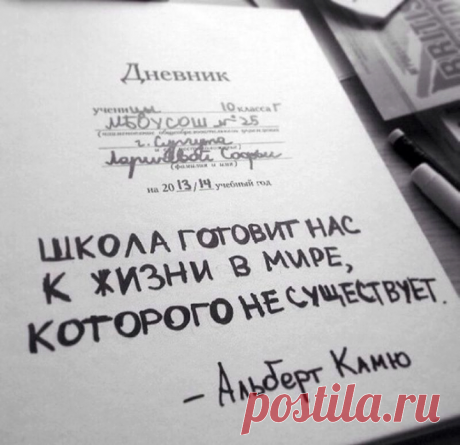 Дневник
ученицы 10 класса Г
МБОУСОШ №25
(наименование общеобразовательного учреждения)
г. Сургута
Софьи
(фамилия и имя)
на 2013/14 учебный год
ШКОЛА ГОТОВИТ НАС
К ЖИЗНИ В МИРЕ,
КОТОРОГО НЕ СУЩЕСТВУЕТ.
- Альберт Камю
postila.ru